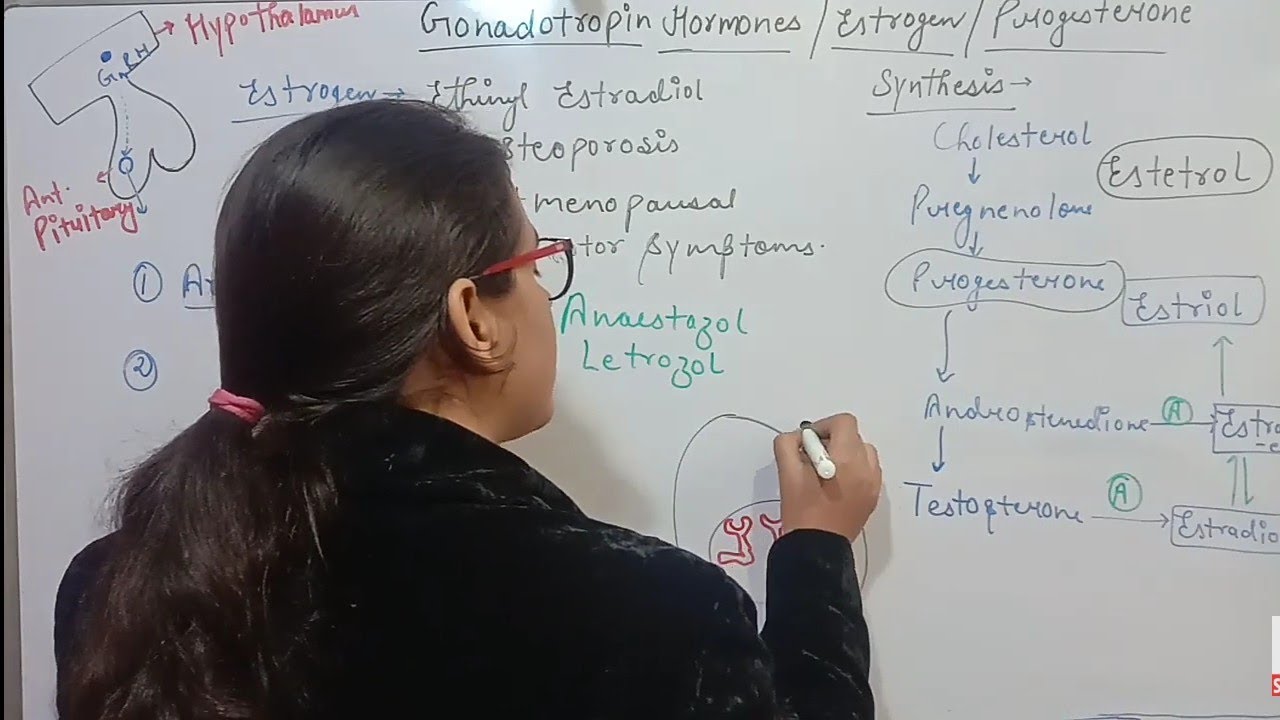 Gonadotropin Hormones / Estrogen / Progesterone
Hypothalamus
GnRH
Ant.
Pituitary
Estrogen → Ethinyl Estradiol
steoporosis
tmenopausal
tor symptoms.
①
②
Anaestazol
Letrozol
Synthesis →
Cholesterol
Estetrol
Pregnenolone
Progesterone
Estriol
Androstenedione
A
Estro
Testosterone
A
Estradio